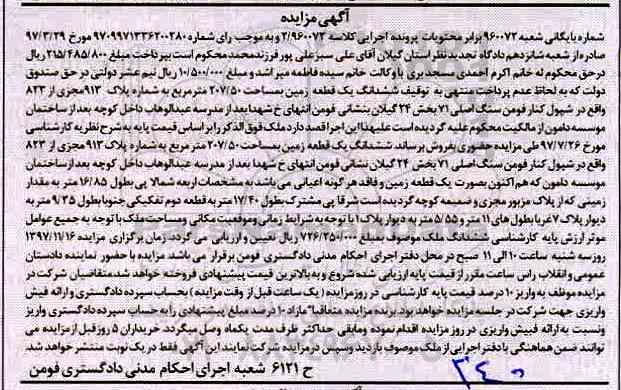 آگهی مزایده
شماره بایگانی شعبه ۹۶۰۰۷۲ برابر محتویات پرونده اجرایی کلاسه ۲/۹۶۰۰۷۲ و به موجب رای شماره ۹۷۰۹۹۷۱۳۳۶۲۰۰۲۸۰ مورخ ۹۷/۳/۲۹
صادره از شعبه شانزدهم دادگاه تجدید نظر استان گیلان آقای علی سبز علی پور فرزند محمد محکوم است بپرداخت مبلغ ۲۱۵/۴۸۵/۸۰۰ ریال
در حق محکوم له خانم اکرم احمدی مسجد بری با وکالت خانم سیده فاطمه میر اشد و مبلغ ۱۰/۵۰۰/۰۰۰ ریال نیم عشر دولتی در حق صندوق
دولت که به لحاظ عدم پرداخت منتهی به توقیف ششدانگ یک قطعه زمین بمساحت ۲۰۷/۵۰ مترمربع به شماره پلاک ۹۱۳ مجزی از ۸۲۳
واقع در شیول کنار فومن سنگ اصلی ۷۱ بخش ۲۴ گیلان بنشانی فومن انتهای خ شهدا بعد از مدرسه عبدالوهاب داخل کوچه بعد از ساختمان
موسسه دامون از مالکیت محکوم علیه گردیده است علیهذا این اجرا قصد دارد ملک فوق الذکر را بر اساس قیمت پایه به شرح نظریه کارشناسی
مورخ ۹۷/۷/۲۶ طی مزایده حضوری بفروش برساند ششدانگ یک قطعه زمین بمساحت ۲۰۷/۵۰ متر مربع به شماره پلاک ۹۱۳ مجزی از ۸۲۳
واقع در شیول کنار فومن سنگ اصلی ۷۱ بخش ۲۴ گیلان نشانی فومن انتهای خ شهدا بعد از مدرسه عبدالوهاب داخل کوچه بعد از ساختمان
موسسه دامون که هم اکنون بصورت یک قطعه زمین و فاقد هر گونه اعیانی می باشد به مشخصات اربعه شمالا پی بطول ۱۶/۸۵ متر به مقدار
زمینی که از پلاک مزبور مجزی و ضمیمه کوچه گردیده است شرقا پی مشترک بطول ۱۷/۴۰ متر به قطعه دوم تفکیکی جنوبا بطول ۹/۳۵ متر به
دیوار پلاک ۷ غربا بطول های ۱۱ متر و ۵/۵۵ متر به دیوار پلاک ۱ با توجه به شرایط زمانی و موقعیت مکانی و مساحت ملک با توجه به جمیع عوامل
موثر ارزش پایه کارشناسی ششدانگ ملک موصوف بمبلغ ۷۲۶/۲۵۰/۰۰۰ ریال تعیین و ارزیابی می گردد. زمان برگزاری مزایده ۱۳۹۷/۱۱/۱۶
روز سه شنبه ساعت ۱۰ الی ۱۱ صبح در محل دفتر اجرای احکام مدنی دادگستری فومن برقرار می باشد مزایده با حضور نماینده دادستان
عمومی و انقلاب راس ساعت مقرر از قیمت پایه ارزیابی شده شروع و به بالاترین قیمت پیشنهادی فروخته خواهد شد. متقاضیان شرکت در
مزایده موظف به واریز ۱۰ درصد قیمت پایه کارشناسی در روز مزایده (یک ساعت قبل از وقت مزایده) بحساب سپرده دادگستری و ارائه فیش
واریزی جهت شرکت در جلسه مزایده خواهد بود. برنده مزایده متعاقبا" مازاد ۱۰ درصد مبلغ پیشنهادی را به حساب سپرده دادگستری واریز
ونسبت به ارائه فبیش واریزی در روز مزایده اقدام نموده ومابقی حداکثر ظرف مدت یکماه وصل میگردد. خریداران ۵ روز قبل از مزایده می
توانند ضمن هماهنگی با دفتر اجرایی از ملک موصوف بازدید وسپس در مزایده شرکت نمایند این آگهی فقط در یک نوبت منتشر خواهد شد.
ح ۶۱۲۱ شعبه اجرای احکام مدنی دادگستری فومن
۳۴۰